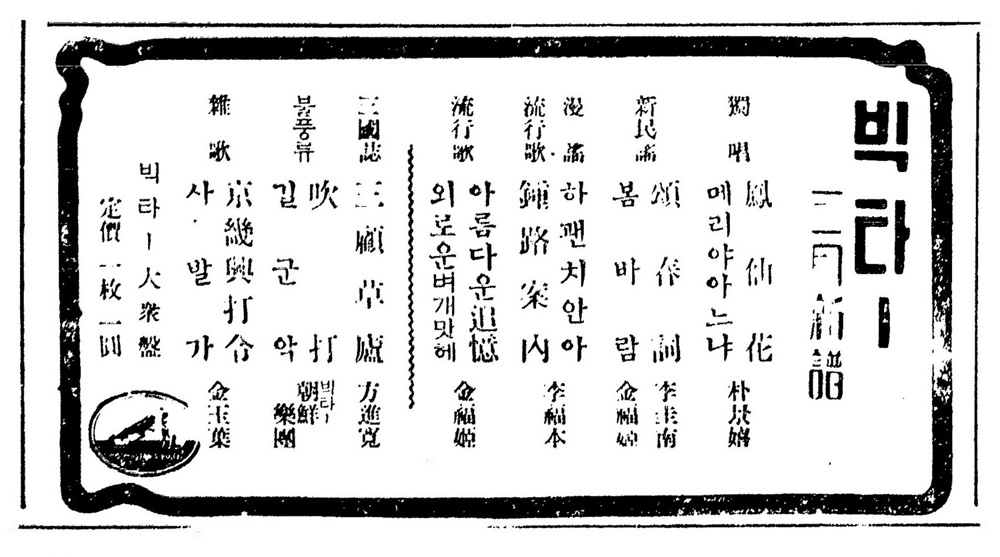 빅타ー
三月新譜
獨唱
鳳仙花
메리야아느냐
朴景嬉
新民謠
頌春詞
李圭南
봄바람
金福姬
漫謠
하괜치안아
流行歌
鍾路案內
李福本
流行歌
아름다운追憶
외로운벼개맛헤
金福姬
三國誌
三顧草廬
方進寬
불풍류
吹打
길군악
빅타ー
朝鮮
樂團
雜歌
京幾興打令
사발가
金玉葉
빅타ー大衆盤
定價一枚一圓